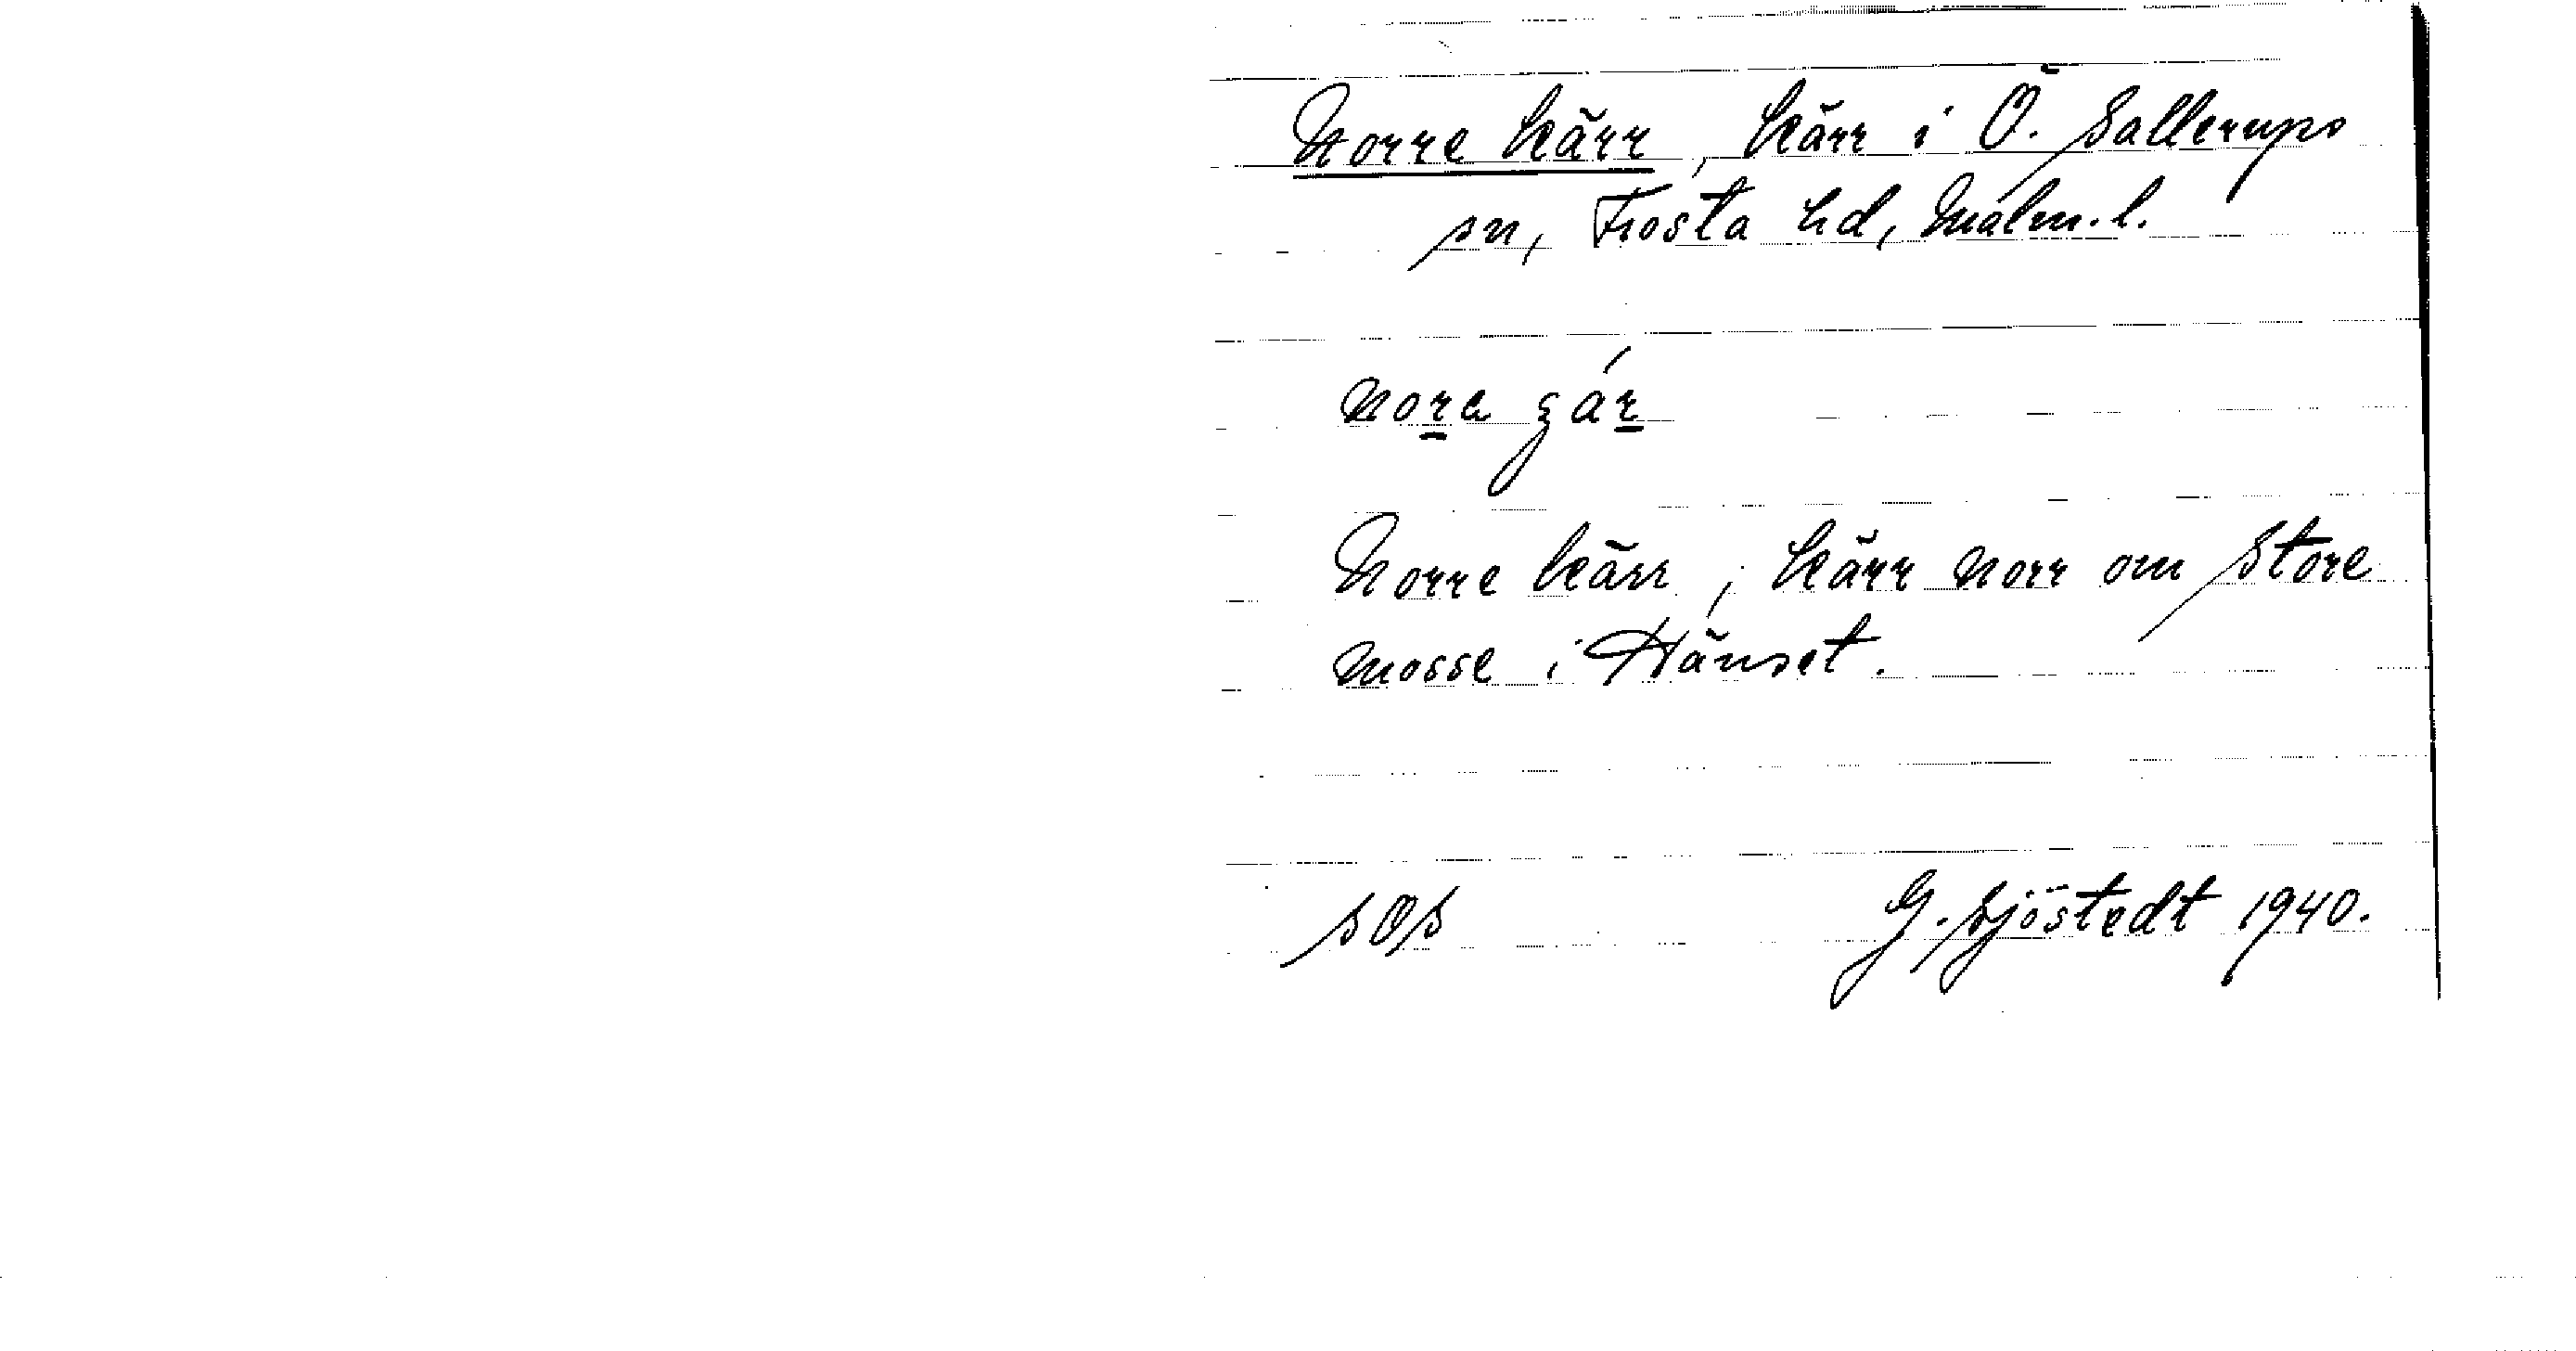 Norre kärr, kärr i Ö. Sallerups
sn, Frosta hd, Malm. l.
Norre kärr; kärr norr om Store
mosse i Hänset.
SOS G. Sjöstedt 1940.